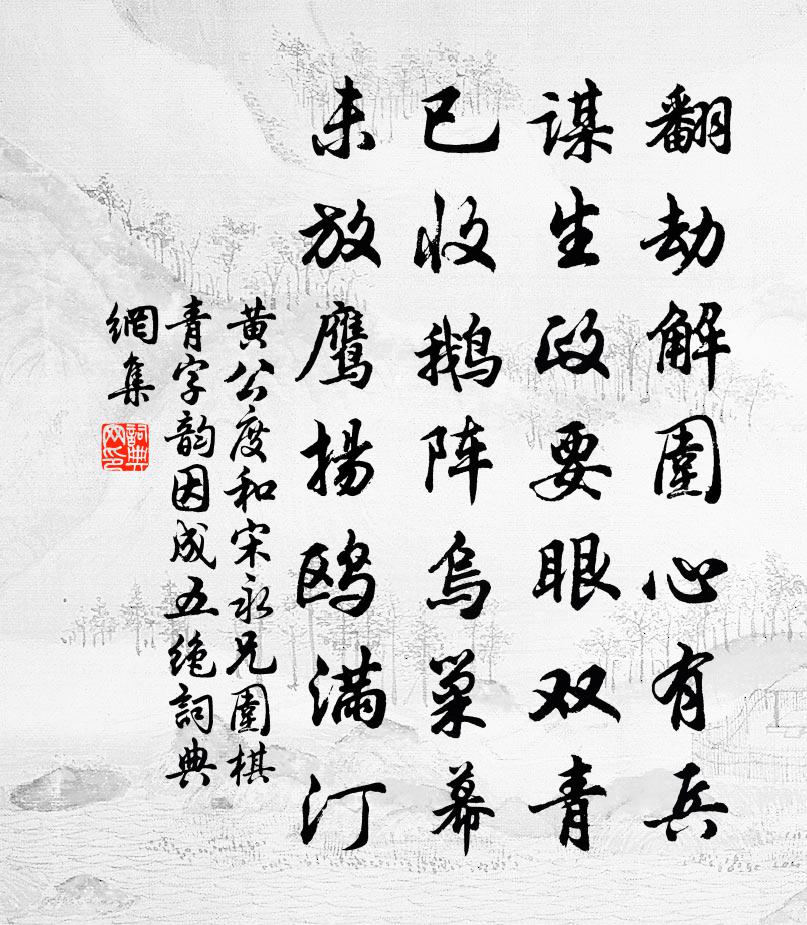 翻劫解圍心有兵
谋生政要眼双青
已收鹅阵乌巢幕
未放鹰揚鸥满汀
黄公度和宋永兄圍棋
青字韵因成五绝詞典
網集
詞典
网印